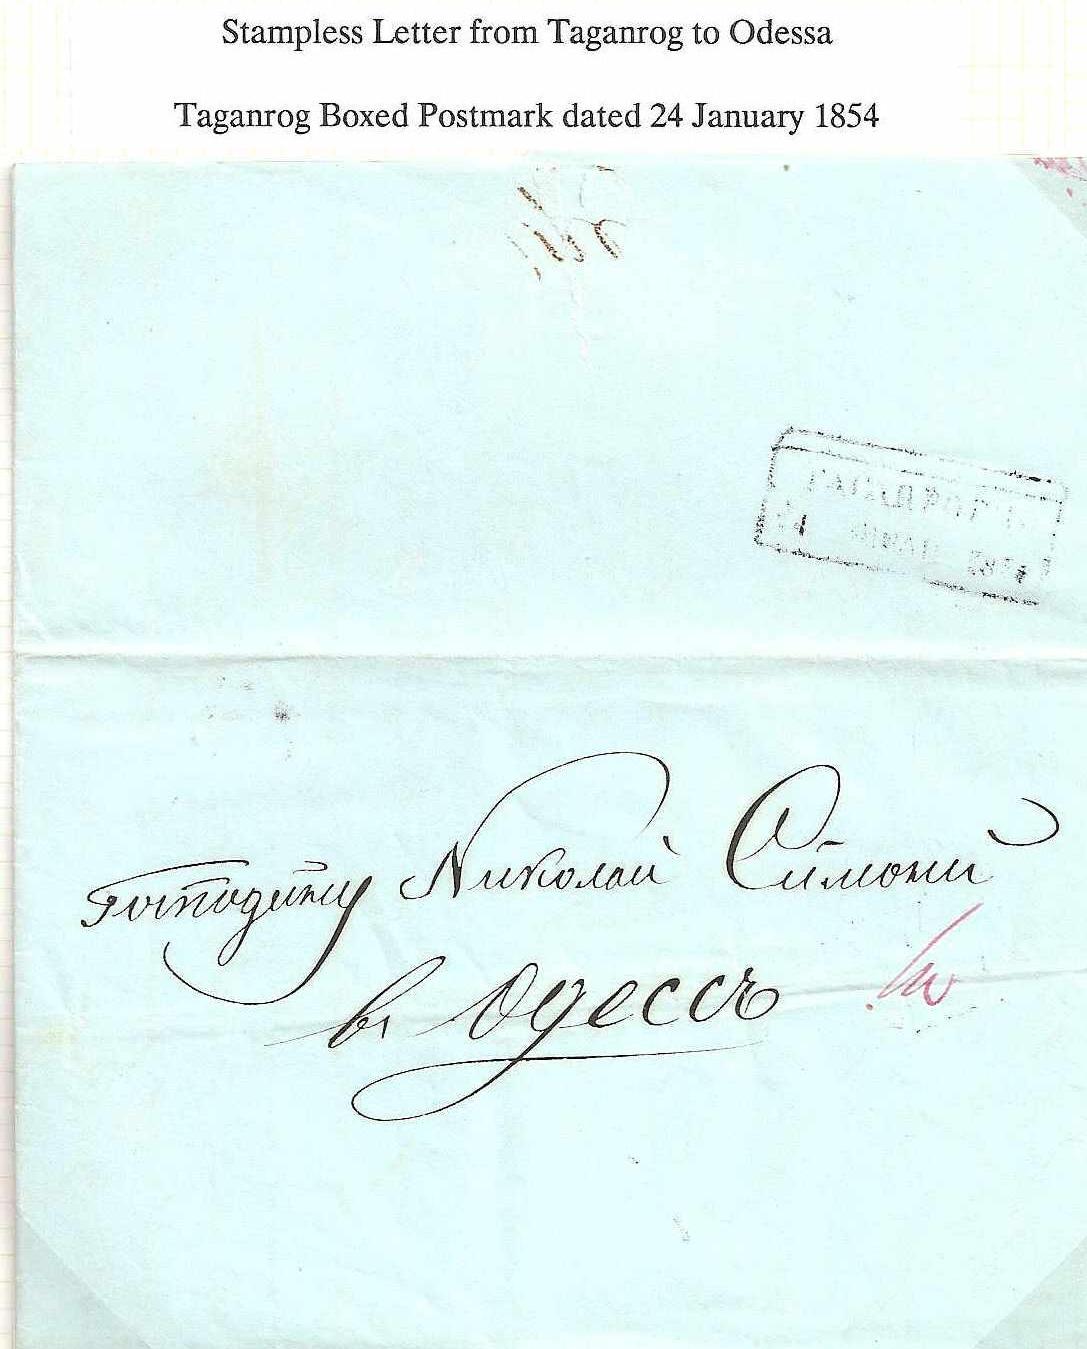 Stampless Letter from Taganrog to Odessa
Taganrog Boxed Postmark dated 24 January 1854
Господину Николай Симони
въ Одессѣ